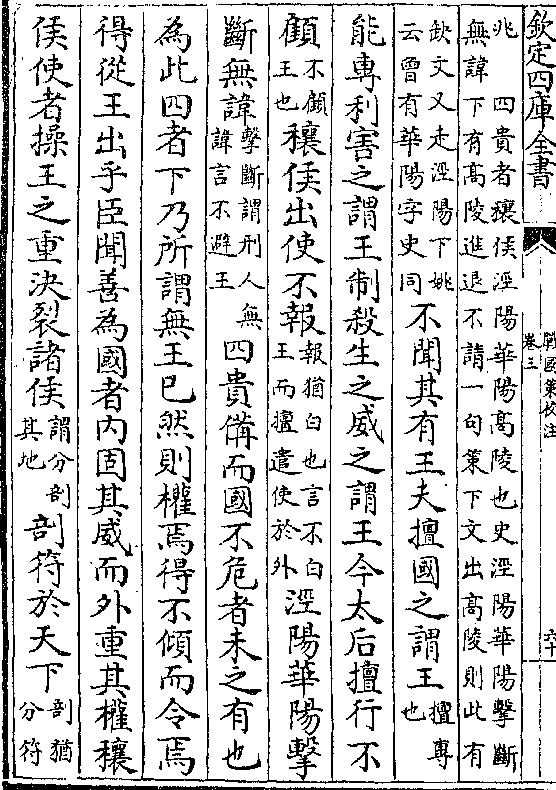 欽定四庫全書
戰國策校注
卷三
六十
兆　四貴者穰侯涇陽華陽髙陵也史涇陽華陽擊斷
無諱下有髙陵進退不請一句策下文出髙陵則此有
缺文又走涇陽下姚
云曾有華陽字史同
不聞其有王夫擅國之謂王
擅專
也
能專利害之謂王制殺生之威之謂王今太后擅行不
顧
不顧
王也
穰侯出使不報
報猶白也言不白
王而擅遣使於外
涇陽華陽擊
斷無諱
擊斷謂刑人無
諱言不避王
四貴備而國不危者未之有也
為此四者下乃所謂無王已然則權焉得不傾而令焉
得從王出乎臣聞善為國者内固其威而外重其權穰
侯使者操王之重決裂諸侯
謂分剖
其地
剖符於天下
剖猶
分符